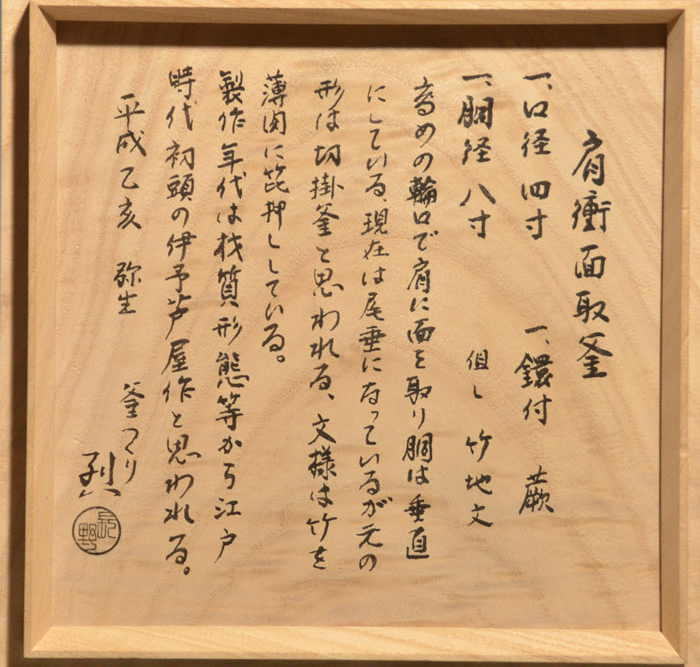 肩衝面取釜
一、口径 四寸 一、鐶付 蕨
一、胴径 八寸 但し 竹地文
高めの輪口で肩に面を取り胴は垂直
にしている、現在は尾垂になっているが元の
形は切掛釜と思われる、文様は竹を
薄肉に箆押ししている。
製作年代は材質形態等から江戸
時代初頭の伊予芦屋作と思われる。
平成乙亥 弥生
釜つくり
烈
長野